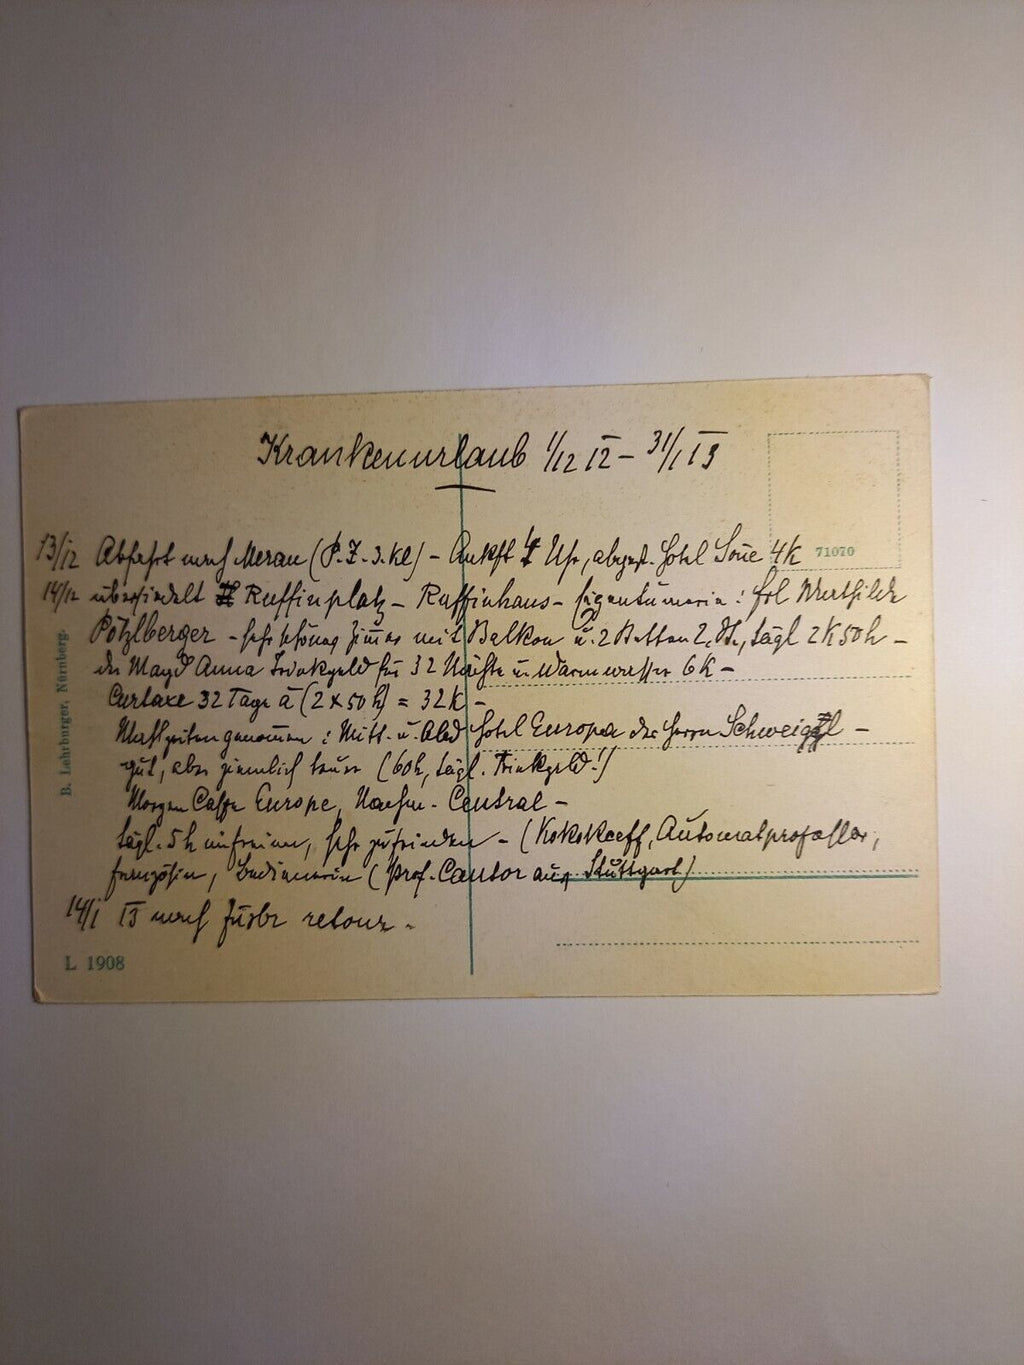 Krankenurlaub 1/12 12 – 31/1 13
13/12 Abfahrt nach Meran (P.Z. 3. Kl) – Ankft 4 Uhr, abgest. Hotel Sonne 4K
71070
14/12 übersiedelt Ruffinplatz – Ruffinhaus – Eigentümerin: Frl Mathilde
Pötzlberger – sehr schönes Zim̄er mit Balkon u. 2 Betten 2. St., tägl 2K50h –
der Magd Anna Trinkgeld für 32 Nächte u. Warmwasser 6K –
Curtaxe 32 Tage à (2 x 50 h) = 32K –
Mahlzeiten genom̄en: Mitt- u. Abd Hotel Europa des Herrn Schweiggl –
gut, aber ziemlich teuer (60h, tägl. Trinkgeld!)
Morgen Caffe Europe, Nachm. Central –
tägl. 5h im freien, sehr zufrieden – (Kokskeeff, Automatprofessor,
französin, (Prof. Cantor aus Stuttgart)
14/1 13 nach Insbr retour.
B. Lehrburger, Nürnberg.
L 1908